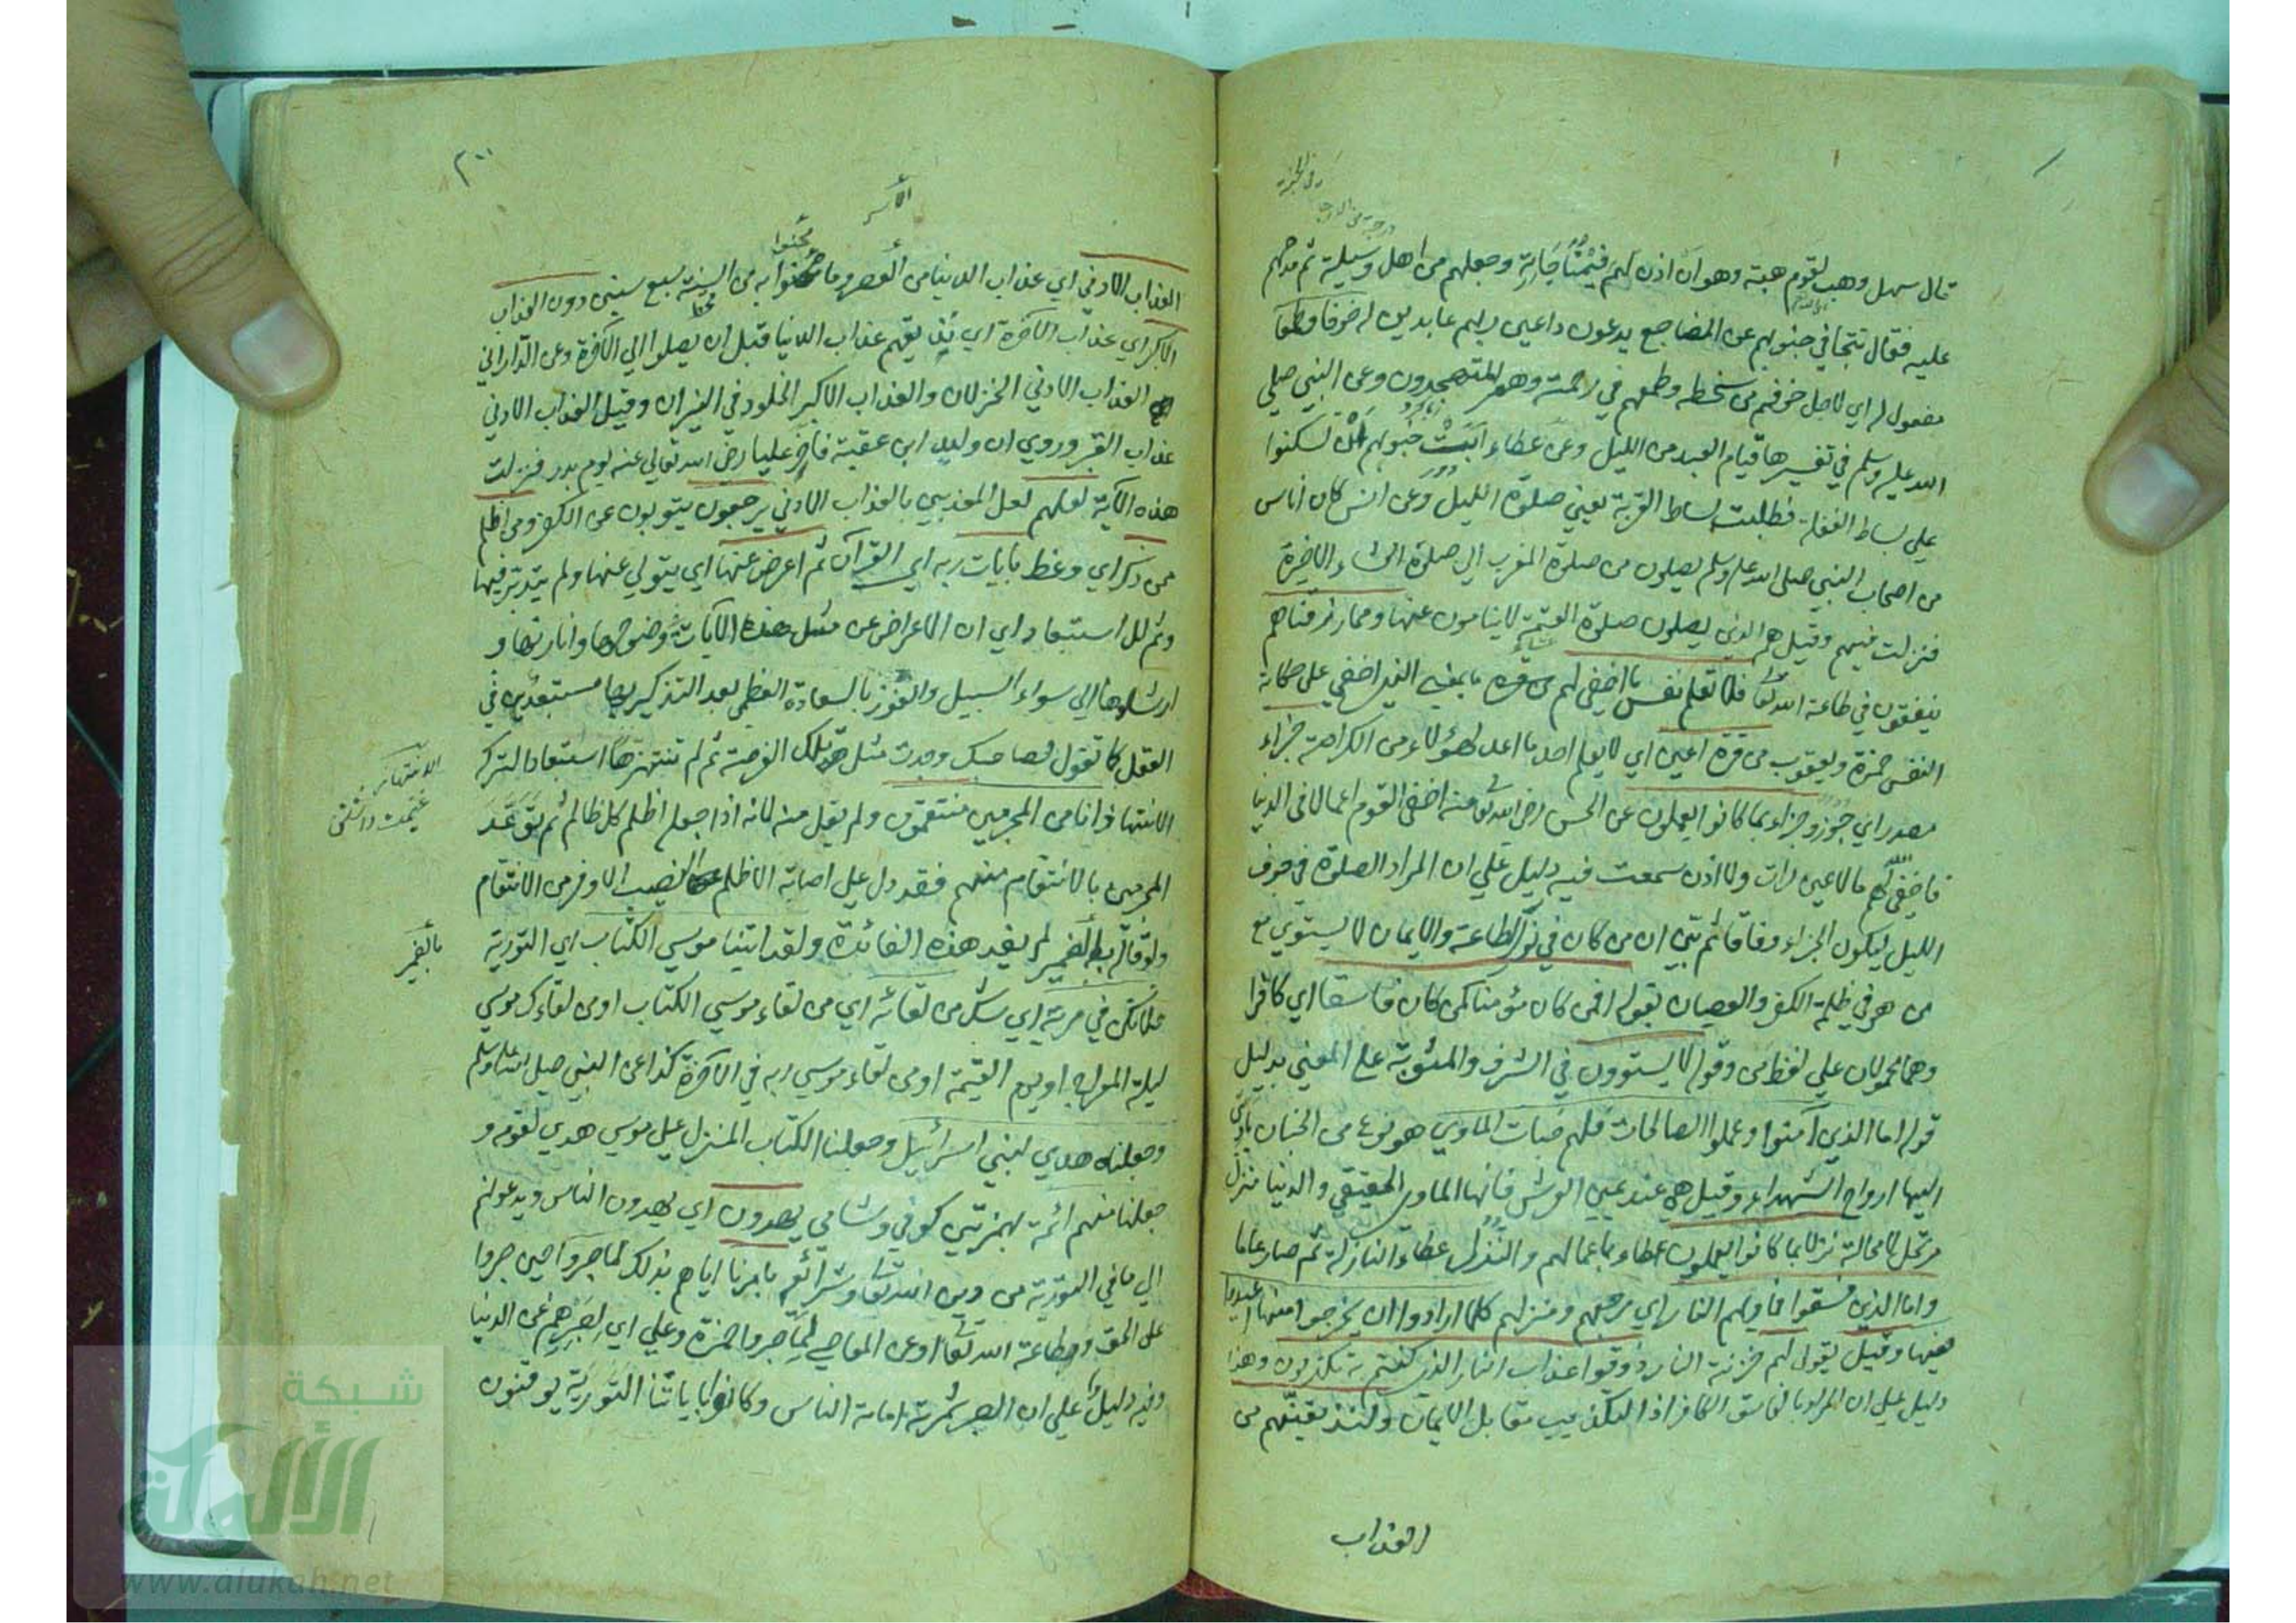 قال سهل وهب لقوم هبة وهو ان اذن لهم في مناجاته وجعلهم من اهل وسيلته ثم مدحهم
عليه فقال تتجافى جنوبهم عن المضاجع يدعون داعين ربهم عابدين له خوفا وطمعا
مفعول له اي لاجل خوفهم من سخطه وطمعهم في رحمته وهم المتهجدون وعن النبي صلي
الله عليه وسلم في تفسيرها قيام العبد من الليل وعن عطاء ابت جنوبهم ان تسكنوا
علي بساط الغفلة فطلبت بساط القربة يعني صلوة الليل وعن انس كان اناس
من اصحاب النبي صلى الله عليه وسلم يصلون من صلوة المغرب الي صلوة العشاء الاخيرة
فنزلت فيهم وقيل هم الذي يصلون صلوة العتمة لا ينامون عنها ومما رزقناهم
ينفقون في طاعة الله تعا فلا تعلم نفس ما اخفي لهم من قرة ما بمعنى الذي اخفي على حكاية
النفس حمزة ويعقوب من قرة اعين اي لا يعلم احد ما اعد لهؤلاء من الكرامة جزاء
مصدر اي جوزوا جزاء بما كانوا يعملون عن الحسن رضي الله تعا عنه اخفى القوم اعمالا في الدنيا
فاخفى الله لهم ما لا عين رات ولا اذن سمعت فيه دليل علي ان المراد الصلوة في جوف
الليل ليكون الجزاء وفاقا ثم بين ان من كان في نور الطاعة والايمان لا يستوي مع
من هو في ظلمة الكفر والعصيان بقوله افمن كان مؤمنا كمن كان فاسقا اي كافرا
وهما محمولان علي لفظ من وقوله لا يستوون في الشرف والمثوبة علي المعني بدليل
قوله اما الذين آمنوا وعملوا الصالحات فلهم جنات الماوي هو نوع من الجنان تأوي
اليها ارواح الشهداء وقيل هي عند يمين العرش فانها الماوى الحقيقي والدنيا منزل
مرتحل لا محالة نزلا بما كانوا يعملون عطاء باعمالهم والنزل عطاء النازل ثم صار عاما
واما الذين فسقوا فماويهم النار اي مرجعهم ومنزلهم كلما ارادوا ان يخرجوا منها اعيدوا
فيها وقيل يقول لهم خزنة النار ذوقوا عذاب النار الذي كنتم به تكذبون وهذا
دليل علي ان المراد بالفاسق الكافر اذ التكذيب مقابل الايمان ولنذيقنهم من
العذاب
العذاب الادني اي عذاب الدنيا من القتل وما محنوا به من السنة سبع سنين دون العذاب
الاكبر اي عذاب الآخرة اي نذيقهم عذاب الدنيا قبل ان يصلوا الي الآخرة وعن الداراني
العذاب الادني الخذلان والعذاب الاكبر الخلود في النيران وقيل العذاب الادني
عذاب القبر وروي ان وليد ابن عقبة فاخر عليا رضي الله تعالي عنه يوم بدر فنزلت
هذه الآية لعلهم لعل المعذبين بالعذاب الادني يرجعون يتوبون عن الكفر ومن اظلم
ممن ذكر اي وعظ بايات ربه اي القرآن ثم اعرض عنها اي يتولي عنها ولم يتدبر فيها
وثم للاستبعاد اي ان الاعراض عن مثل هذه الآيات في وضوحها وانارتها و
ارشادها الي سواء السبيل والفوز بالسعادة العظمي بعد التذكير بها مستبعد في
العقل كما تقول لصاحبك وجدت مثل تلك الفرصة ثم لم تنتهزها استبعادا لتركه
الانتهاز انا من المجرمين منتقمون ولم يقل منه لانه اذا جعله اظلم كل ظالم ثم توعد
المجرمين بالانتقام منهم فقد دل علي اصابة الاظلم النصيب الاوفر من الانتقام
ولو قال بالضمير لم يفد هذه الفائدة ولقد اتينا موسي الكتاب اي التورية
فلا تكن في مرية اي شك من لقائه اي من لقاء موسي الكتاب او من لقاءك موسي
ليلة المعراج او يوم القيمة او من لقاء موسي ربه في الآخرة كذا عن النبي صلى الله عليه وسلم
وجعلناه هدي لبني اسرائيل وجعلنا الكتاب المنزل علي موسي هدي لقومه و
جعلنا منهم ائمة بهمزتين كوفي وشامي يهدون اي يهدون الناس ويدعونهم
الي ما في التورية من دين الله تعا وشرائعه بامرنا اياهم بذلك لما صبروا حين صبروا
على الحق وطاعة الله تعا او عن المعاصي لما صبروا حمزة وعلي اي لصبرهم عن الدنيا
وفيه دليل علي ان الصبر ثمرته امامة الناس وكانوا باياتنا التورية يوقنون
محنوا
الاسر
بالضمير
شبكة
الألوكة
www.alukah.net